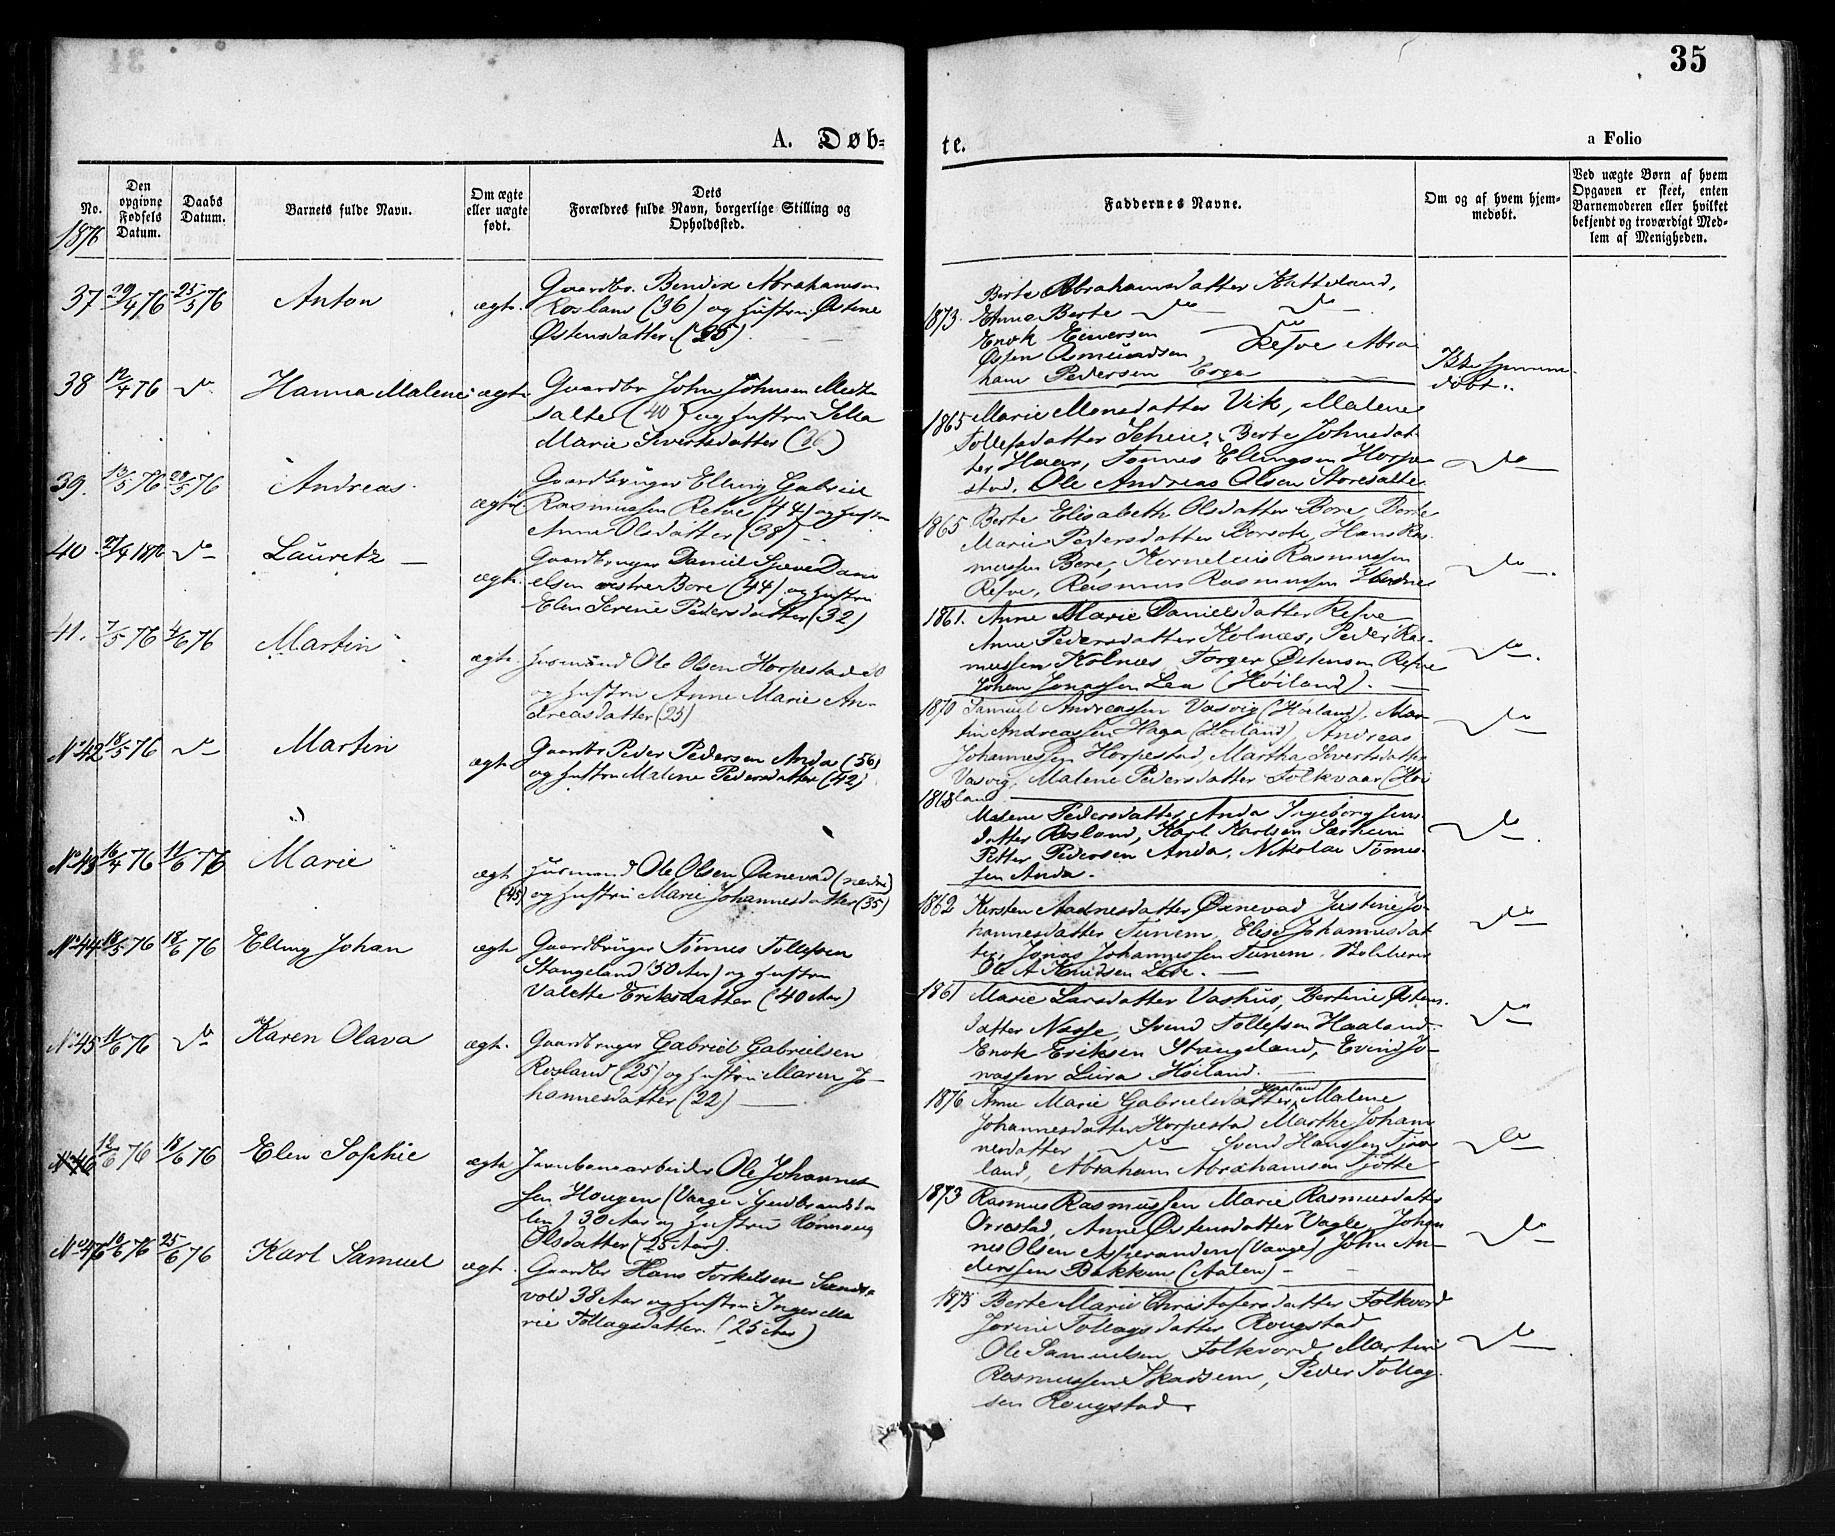 35
A. Døb-
te.
a Folio
No.
Den opgivne Fødsels Datum.
Daabs Datum.
Barnets fulde Navn.
Om ægte eller uægte født.
Dets
Forældres fulde Navn, borgerlige Stilling og
Opholdssted.
Faddernes Navne.
Om og af hvem hjem-
medøbt.
Ved uægte Børn af hvem
Opgaven er skeet, enten
Barnemoderen eller hvilket
bekjendt og troværdigt Med-
lem af Menigheden.
1876
37 29/4 76 25/5 76 Anton ægt.
Gaardbr. Bendix Abrahamsen
Rosland (36) og Hustru Østine
Østensdatter (35)
1873. Berte Abrahamsdatter Hatteland,
Anna Berte do do
Enok Einersen do
Østen Asmundsen, Refve Abra
ham Pedersen Erga
Ikke hjemme-
døbt.
38 12/4 76 do Hanna Malene ægt.
Gaardbr John Johnsen Medt
salte (40) og Hustru Silla
Marie Sivertsdatter (36)
1865 Marie Monsdatter Vik, Malene
Tollefsdatter Scheie, Berte Johnsdat
ter Haar, Tønnes Ellingsen Horpe
stad. Ole Andreas Olsen Storesalte
do
39. 13/5 76 28/5 76 Andreas ægte
Gaardbruger Elling Gabriel
Rasmussen Refve (44) og Hustru
Anne Olsdatter (38)
1865 Berte Elisabeth Olsdatter Bore, Berte
Marie Pedersdatter Borsok, Hans Ras
mussen Bore, Kornelius Rasmussen
Refve, Rasmus Rasmussen
do
40 21/4 1876 do Lauretz ægt.
Gaardbruger Daniel Dani
elsen vestre Bore (44) og Hustru
Elen Serene Pedersdatter (32)
1861. Anne Marie Danielsdatter Refve
Anne Pedersdatter Kolnæs, Peder Ras-
mussen Kolnæs, Torger Østensen Refve
Johan Jonassen Lea (Høiland).
do
41. 7/5 76 4/6 76 Martin ægt
Husmand Ole Olsen Horpestad 30
og Hustru Anne Marie An-
dreasdatter (25)
1870 Samuel Andreassen Vasvig (Høiland), Mar
tin Andreassen Haga (Høiland), Andreas
Johannessen Horpestad, Martha Sivertsdatter
Vasvig, Malene Pedersdatter Folkvaar (Høi
land
do
No 42 18/5 76 do Martin ægt
Gaardbr Peder Pedersen Anda (56)
og Hustru Malene Pedersdatter (42)
1868 Malene Pedersdatter Anda Ingeborg Jens
datter Rosland, Karl Karlsen Særheim
Petter Pedersen Anda, Nikolai Tønnes
sen Anda.
do
No 43 16/4 76 11/6 76 Marie ægt
Husmand Ole Olsen Øxnevad (nedre)
(45) og Hustru Marie Johannesdatter (35)
1862 Kirsten Aadnesdatter Øxnevad Justine Jo
hannesdatter Tunem, Elise Johannesdat
ter, Jonas Johannessen Tunem.
Ole A Knudsen Lode.
do
No 44 18/5 76 18/6 76 Elling Johan ægt
Gaardbruger Tønnes Tollefsen
Stangeland (50 Aar) og Hustru
Valette Eriksdatter (40 Aar)
1861 Marie Larsdatter Vashus, Bertine Østens
datter Næsse, Svend Tollefsen Haaland
Enok Eriksen Stangeland, Evind Jo-
nassen Leira Høiland.
do
No 45 11/6 76 do Karen Olava ægt.
Gaardbruger Gabriel Gabrielsen
Rosland (25) og Hustru Maren Jo-
hannesdatter (22)
1876 Anne Marie Gabrielsdatter Haaland, Malene
Johannesdatter Horpestad Marthe Johan
nesdatter do Svend Hanssen Tjøe
land, Abraham Abrahamsen Tjøtte
do
No 46 12/6 76 18/6 76 Elen Sophie ægte
Jernbanearbeider Ole Johannes
sen Hougen (Vaage i Gudbrandsda
len) 30 Aar og Hustru Rønnoug
Olsdatter (25 Aar).
1873 Rasmus Rasmussen Marie Rasmusdatter
Orrestad, Anne Østensdatter Vagle, Johan
nes Olsen Asperanden (Vaage) John An-
derssen Bakken (Aalen)
do
No 46 10/6 76 25/6 76 Karl Samuel ægt.
Gaardbr Hans Torkelsen Sands-
vold 38 Aar og Hustru Inger Ma
rie Tollagsdatter. (25 Aar)
1875 Berte Marie Christofersdatter Folkvord
Jorine Tollagsdatter Rougstad
Ole Samuelsen Folkvord, Martin
Rasmussen Skadsem, Peder Tollag
sen Rougstad.
do